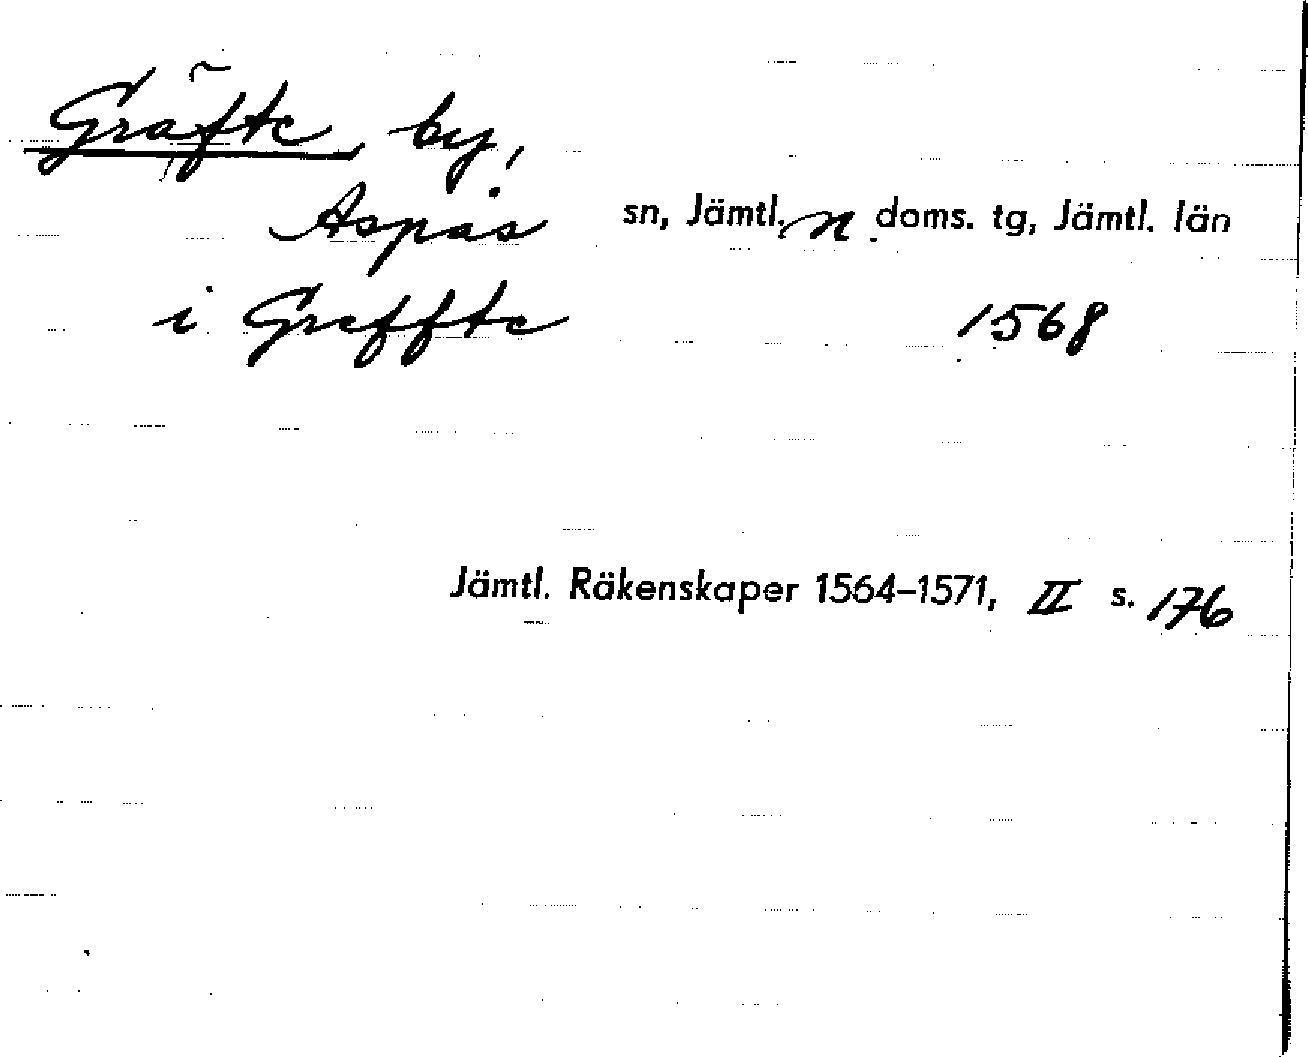 Gräfte, by,
Aspås sn, Jämtl. n doms. tg, Jämtl. län
i Greffte 1568
Jämtl. Räkenskaper 1564–1571, II s. 176